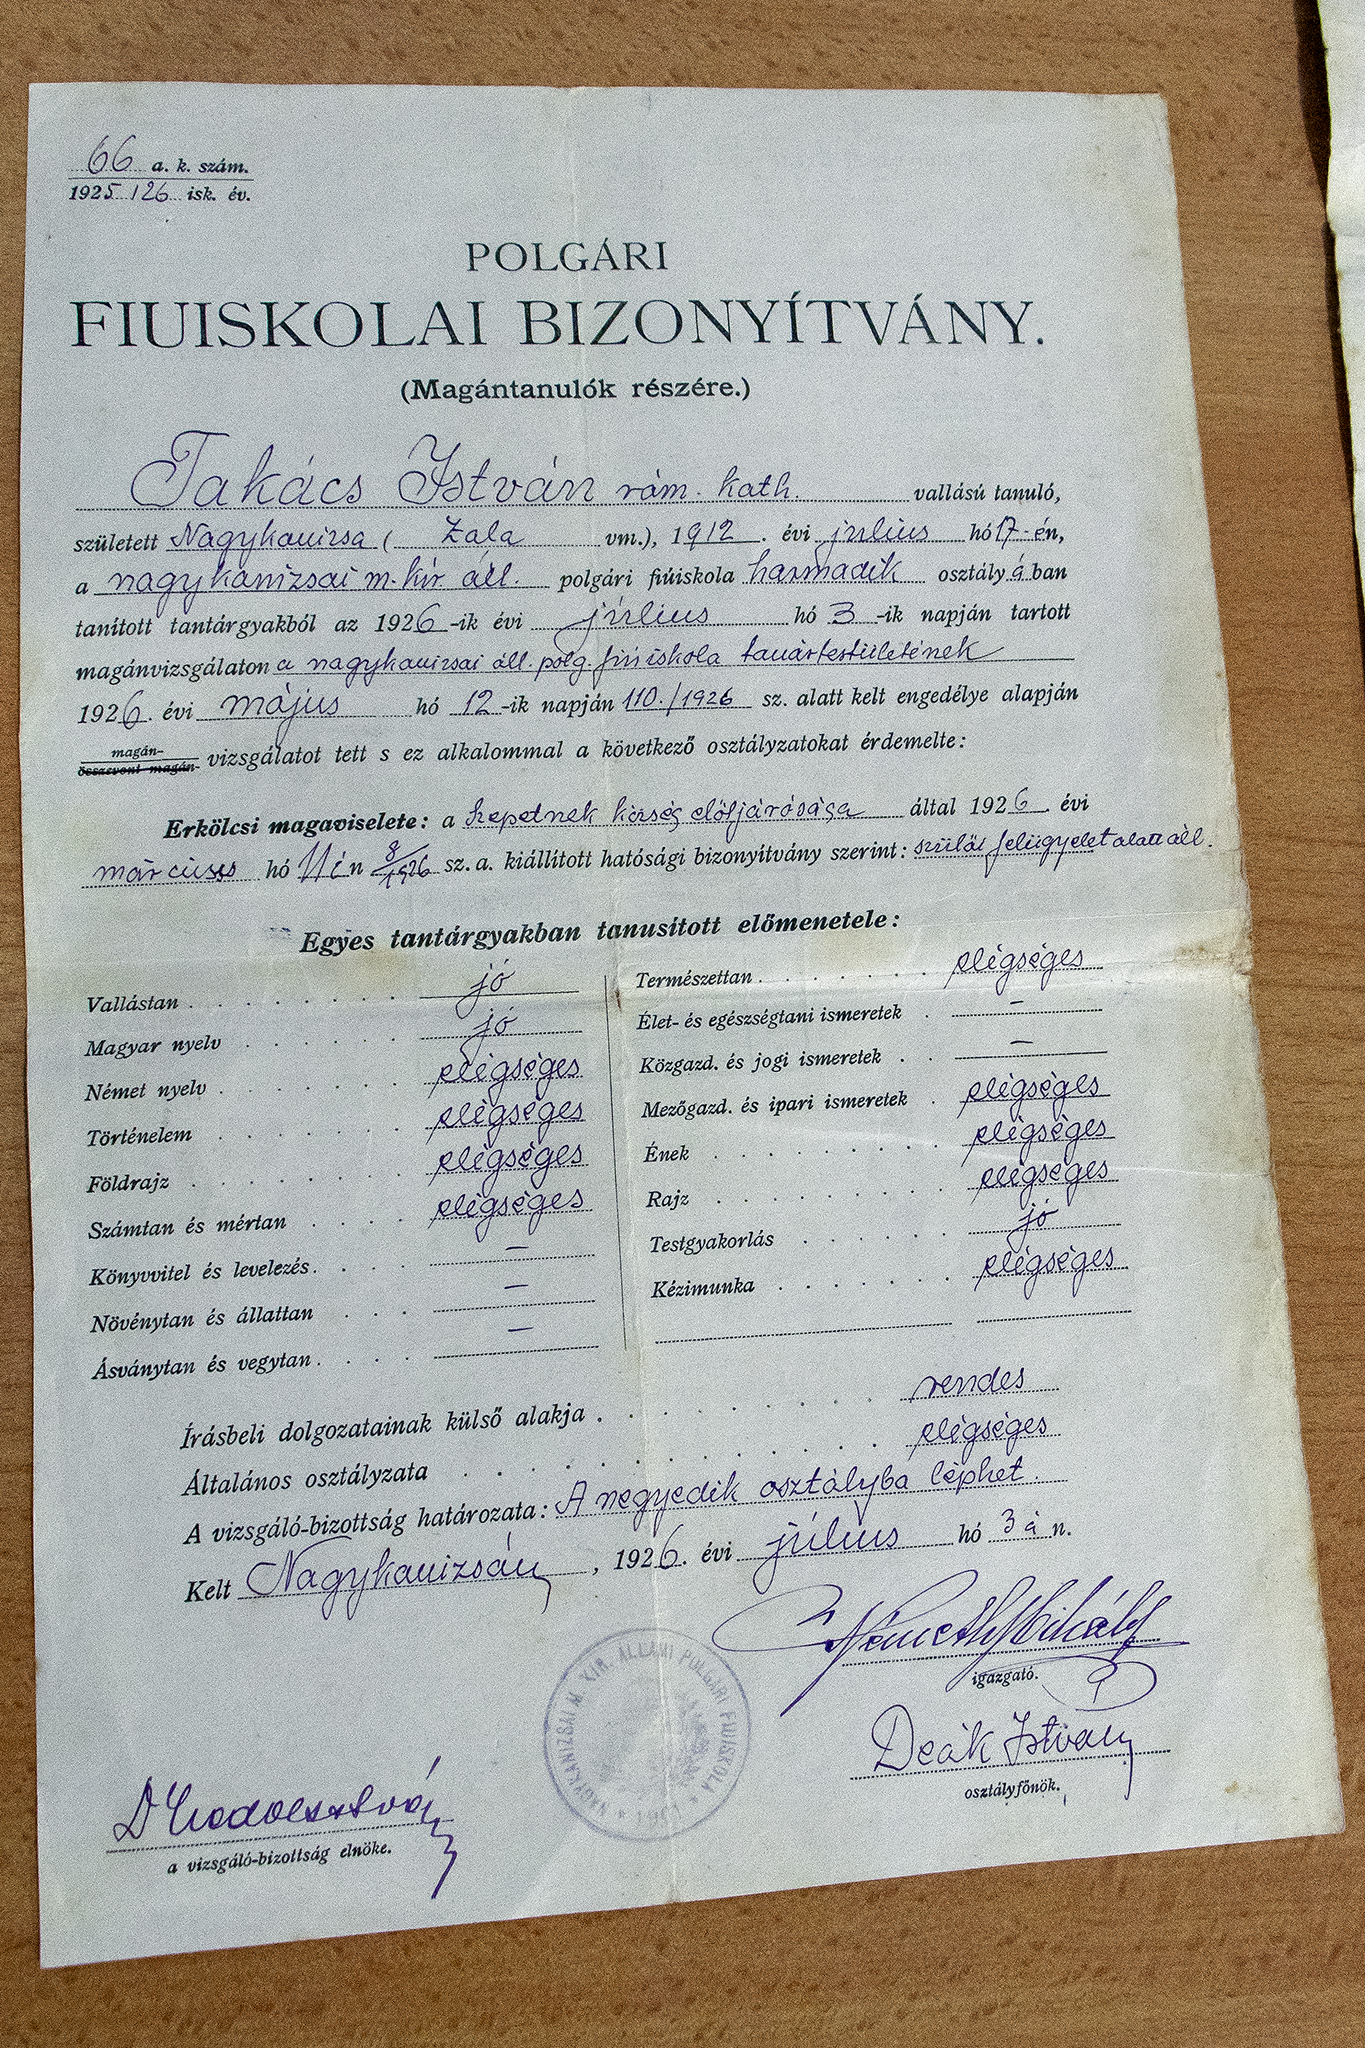 66 a. k. szám.
1925/26 isk. év.
POLGÁRI
FIUISKOLAI BIZONYÍTVÁNY.
(Magántanulók részére.)
Takács István róm. kath. vallású tanuló,
született Nagykanizsa ( Zala vm.), 1912. évi július hó 17-én,
a nagykanizsai m. kir. áll. polgári fiúiskola harmadik osztályában
tanított tantárgyakból az 1926-ik évi július hó 3-ik napján tartott
magánvizsgálaton a nagykanizsai áll. polg. fiúiskola tanártestületének
1926. évi május hó 12-ik napján 110./1926 sz. alatt kelt engedélye alapján
magán-
összevont magán-
vizsgálatot tett s ez alkalommal a következő osztályzatokat érdemelte:
Erkölcsi magaviselete: a Szepetnek község elöljárósága által 1926. évi
március hó 11én 8/1926 sz. a. kiállított hatósági bizonyítvány szerint: szülői felügyelet alatt áll.
Egyes tantárgyakban tanusított előmenetele:
Vallástan . . . . . . jó
Magyar nyelv . . . . . jó
Német nyelv . . . . . . elégséges
Történelem . . . . . elégséges
Földrajz . . . . . . elégséges
Számtan és mértan . . . . elégséges
Könyvvitel és levelezés . . . . —
Növénytan és állattan . . . —
Ásványtan és vegytan . . . . —
Természettan . . . . . . elégséges
Élet- és egészségtani ismeretek . —
Közgazd. és jogi ismeretek . . —
Mezőgazd. és ipari ismeretek . elégséges
Ének . . . . . . elégséges
Rajz . . . . . . elégséges
Testgyakorlás . . . . . jó
Kézimunka . . . . . elégséges
Írásbeli dolgozatainak külső alakja . . . . . . rendes
Általános osztályzata . . . . . . elégséges
A vizsgáló-bizottság határozata: A negyedik osztályba léphet.
Kelt Nagykanizsán, 1926. évi július hó 3án.
Németh Mihály
igazgató.
NAGYKANIZSAI M. KIR. ÁLLAMI POLGÁRI FIUISKOLA
Deák István
osztályfőnök.
a vizsgáló-bizottság elnöke.